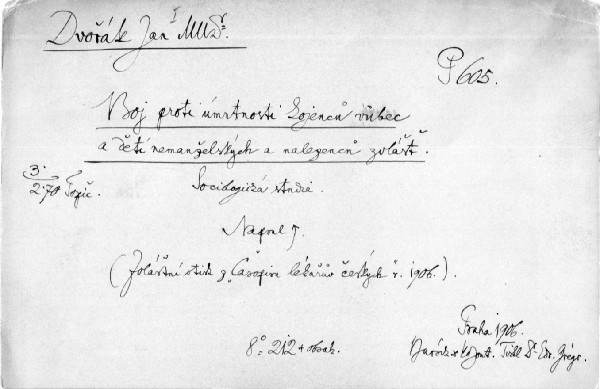 Dvořák Jan MUDr.
I
P 605.
Boj proti úmrtnosti kojenců vůbec
a dětí nemanželských a nalezenců zvlášť.
3.
270 Topič.
Sociologická studie.
Napsal J.
(Zvláštní otisk z „Časopisu lékařův českých" r. 1906.)
Praha 1906.
8° 212 + obsah.
Tiskl Dr. Edv. Grégr.